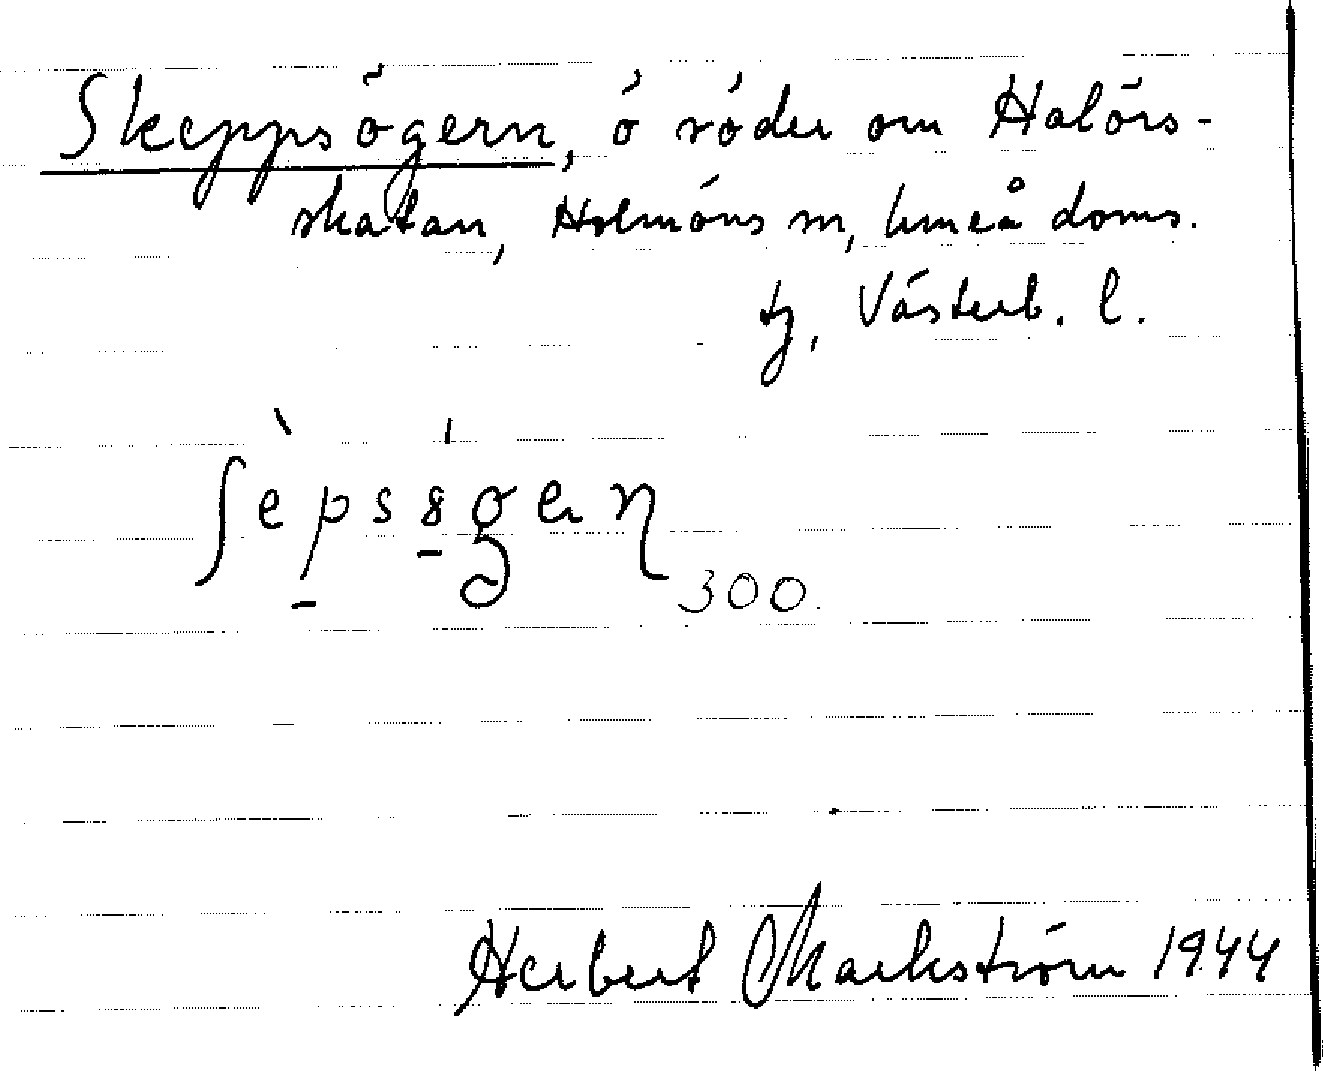 Skeppsögern, ö söder om Halörs-
skatan, Holmöns sn, Umeå doms.
tg, Västerb. l.
ʃèpsögern 300.
Herbert Markström 1944